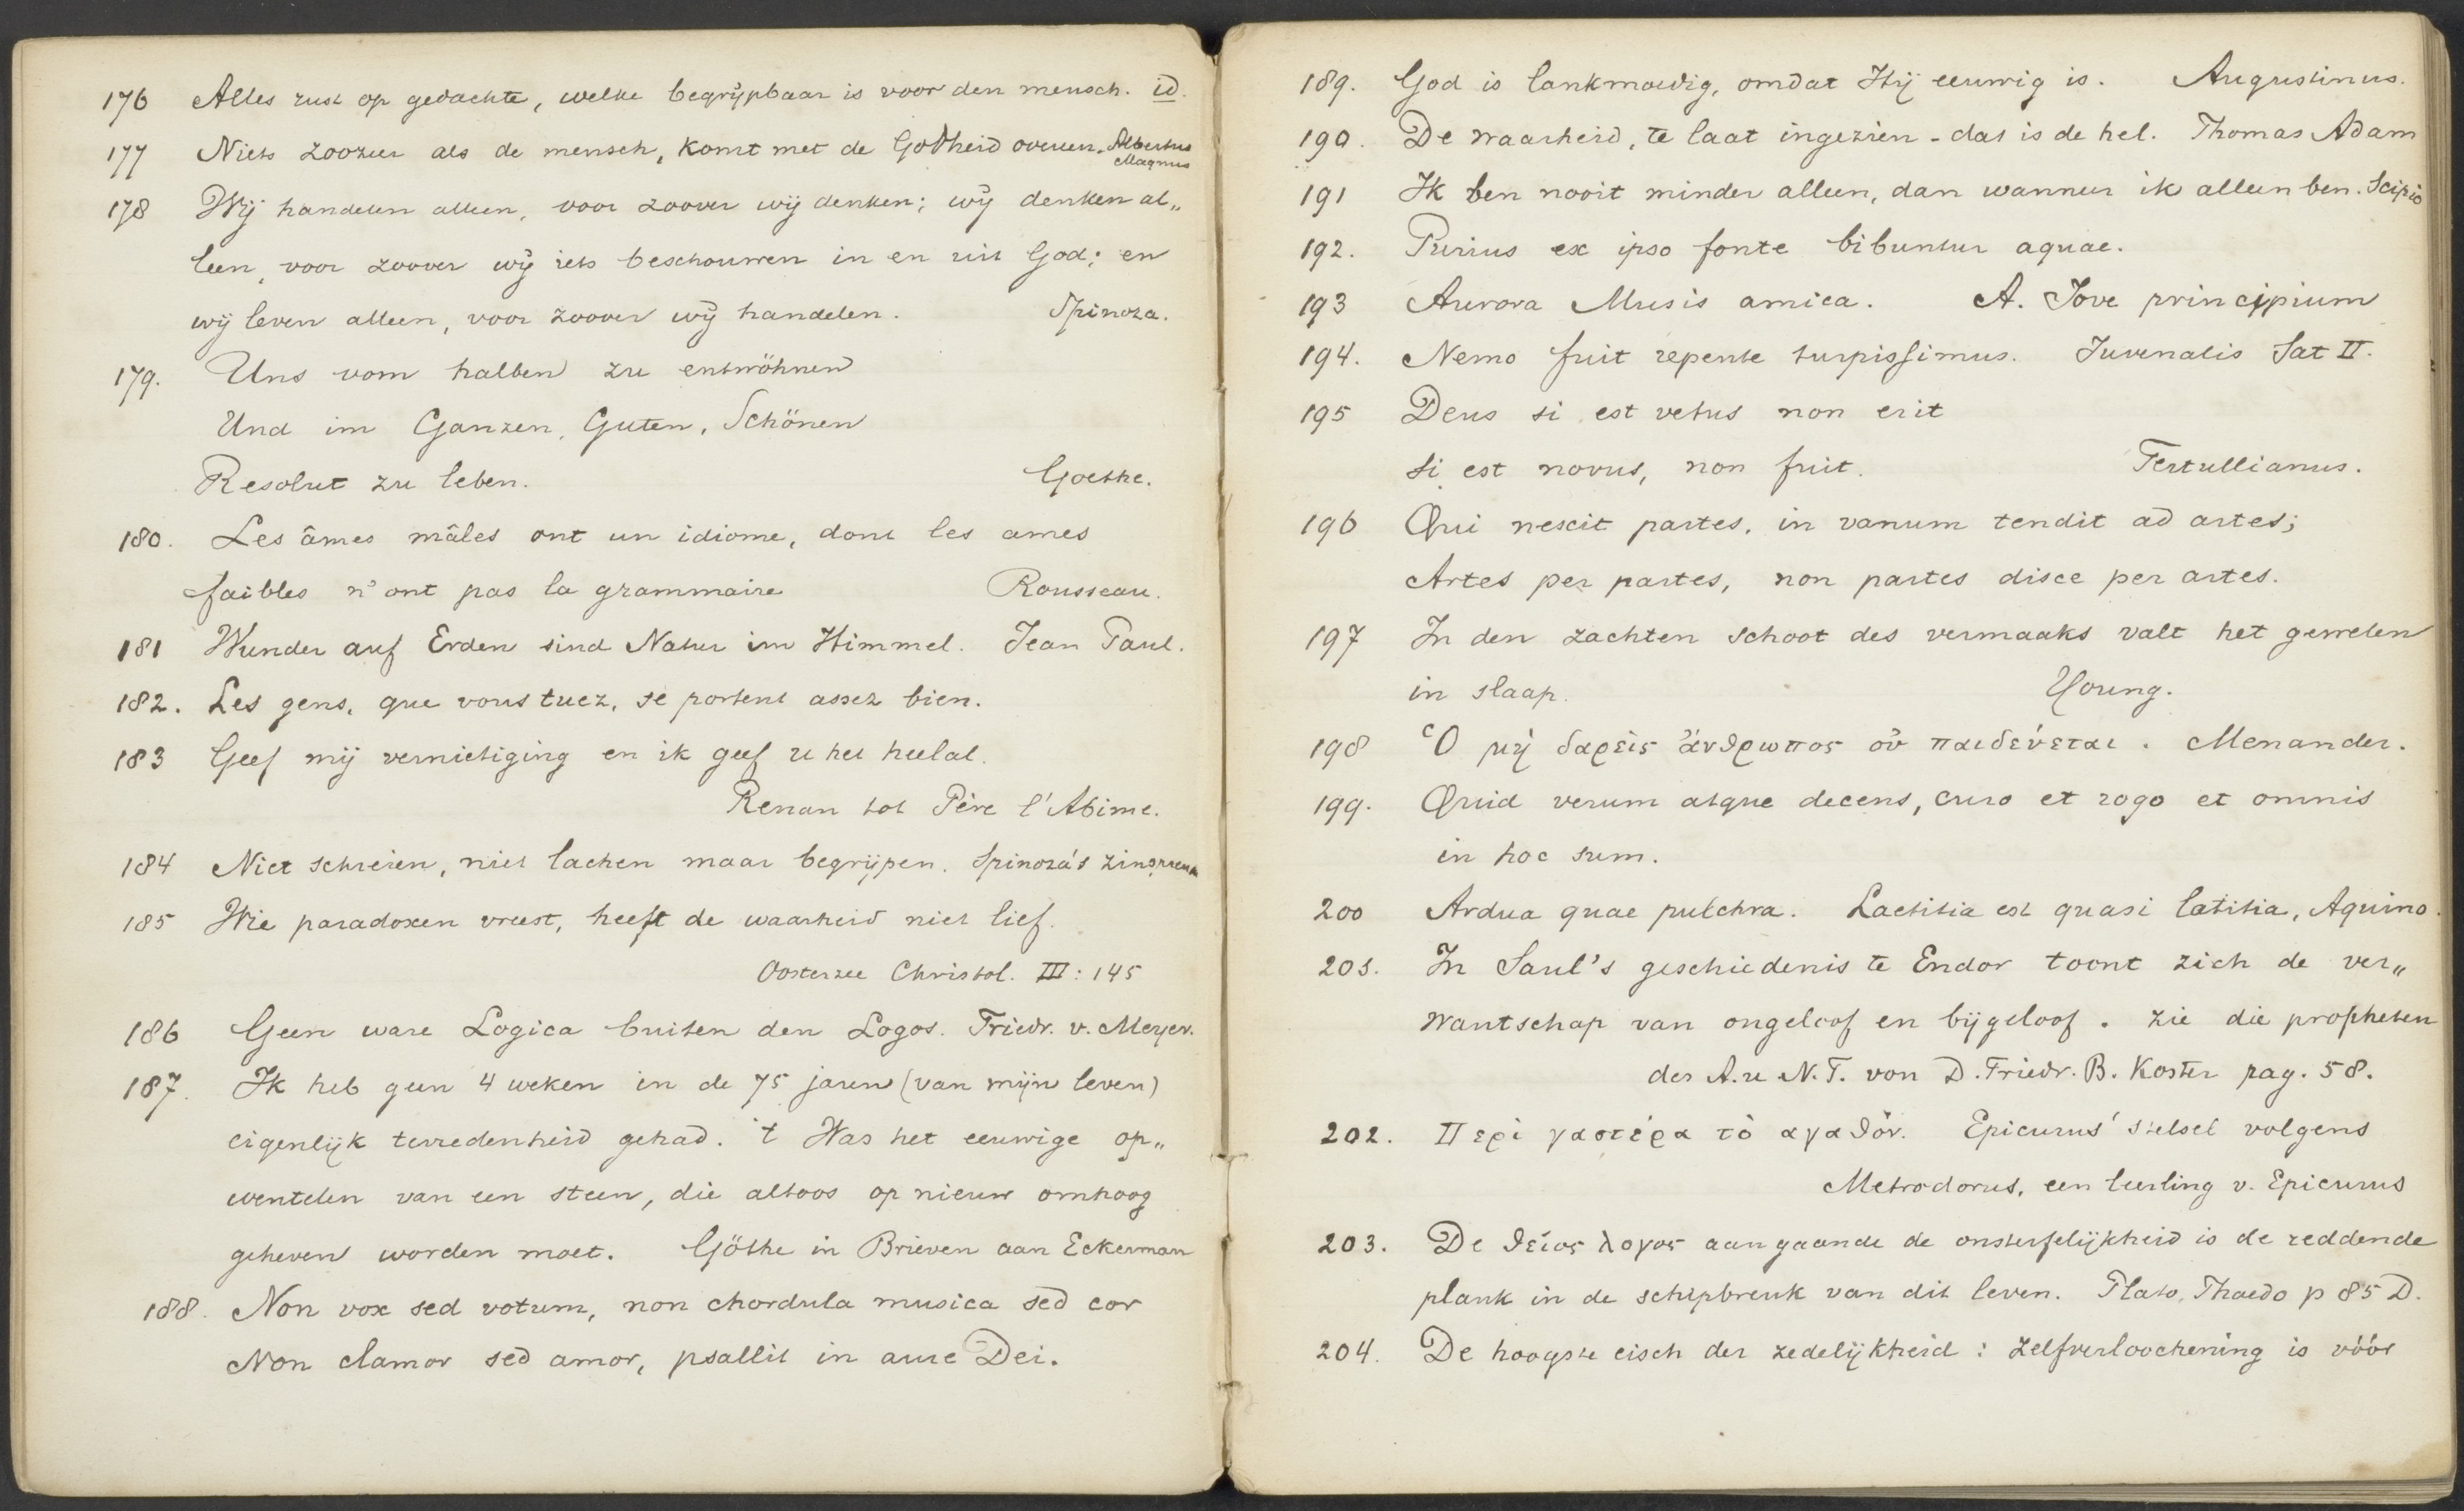 176 Alles rust op gedachte, welke begrijpbaar is voor den mensch. id.
177 Niets zoozeer als de mensch, komt met de Godheid overeen. Albertus Magnus
178 Wij handelen alleen, voor zoover wij denken; wij denken al„
leen, voor zoover wij iets beschouwen in en uit God; en
wij leven alleen, voor zoover wij handelen. Spinoza.
179. Uns vom halben zu entwöhnen
Und im Ganzen, Guten, Schönen
Resolut zu leben. Goethe.
180. Les âmes mâles ont un idiome, dont les ames
faibles n'ont pas la grammaire Rousseau.
181 Wunder auf Erden sind Natur im Himmel. Jean Paul.
182. Les gens, que vous tuez, se portent assez bien.
183 Geef mij vernietiging en ik geef u het heelal.
Renan tot Père l'Abime.
184 Niet schreien, niet lachen maar begrijpen. Spinoza's zinspreuk
185 Wie paradoxen vreest, heeft de waarheid niet lief.
Oosterzee Christol. III: 145
186 Geen ware Logica buiten den Logos. Friedr. v. Meyer.
187. Ik heb geen 4 weken in de 75 jaren (van mijn leven)
eigenlijk tevredenheid gehad. 't Was het eeuwige op„
wentelen van een steen, die altoos op nieuw omhoog
geheven worden moet. Göthe in Brieven aan Eckerman
188. Non vox sed votum, non chordula musica sed cor
Non clamor sed amor, psallit in aure Dei.
189. God is lankmoedig, omdat Hij eeuwig is. Augustinus.
190. De waarheid, te laat ingezien - dat is de hel. Thomas Adam
191 Ik ben nooit minder alleen, dan wanneer ik alleen ben. Scipio
192. Purius ex ipso fonte bibuntur aquae.
193 Aurora Musis amica. A. Jove principium
194. Nemo fuit repente turpissimus. Juvenalis Sat II.
195 Deus si est vetus non erit
si est novus, non fuit. Tertullianus.
196 Qui nescit partes, in vanum tendit ad artes;
Artes per partes, non partes disce per artes.
197 In den zachten schoot des vermaaks valt het geweten
in slaap. Young.
198 Ὁ μὴ δαρεὶς ἄνθρωπος οὐ παιδεύεται. Menander.
199. Quid verum atque decens, curo et rogo et omnis
in hoc sum.
200 Ardua quae pulchra. Laetitia est quasi latitia, Aquino.
201. In Saul's geschiedenis te Endor toont zich de ver„
wantschap van ongeloof en bijgeloof. zie die propheten
des A. u N. T. von D. Friedr. B. Koster pag. 58.
202. Περὶ γαστέρα τὸ αγαθὸν. Epicurus' stelsel volgens
Metrodorus, een leerling v. Epicurus
203. De θεῖος λογος aangaande de onsterfelijkheid is de reddende
plank in de schipbreuk van dit leven. Plato, Phaedo p 85 D.
204. De hoogste eisch der zedelijkheid: zelfverloochening is vóór